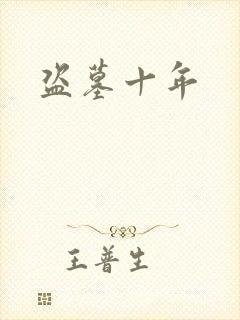 盗墓十年
王普生